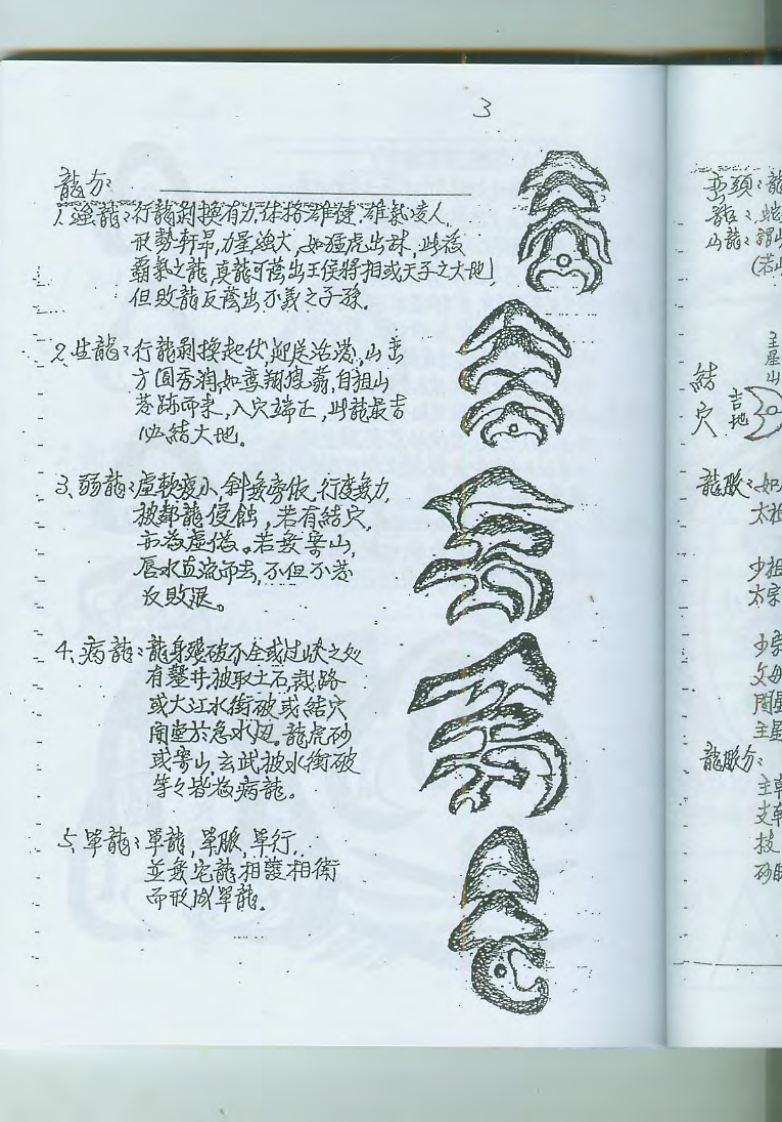 3
龍分:
1.強龍:行龍剥換有力,体格雄健,雄氣凌人,
形勢軒昂,力量強大,如猛虎出林,此為
霸氣之龍,真龍可蔭出王侯將相或天子之大地,
但敗龍反蔭出不義之子孫。
2.生龍:行龍剥換起伏,迎送活潑,山巒
方圓秀潤,如鸞翔鳳翥,自祖山
落跡而来,入穴端正,此龍最吉
必結大地。
3.弱龍:虛軟瘦小,斜發旁依,行度無力,
被鄰龍侵蝕,若有結穴,
亦為虛借。若無案山,
唇水直流而去,不但不
反敗退。
4.病龍:龍身殘破不全或过峽之处
有鑿井,被取土石,裁路
或大江水衝破或結穴
開塋於急水边。龍虎砂
或案山,玄武被水衝破
等々皆為病龍。
5.單龍:單龍,單脈,單行,
並無它龍相護相衛
而形成單龍。
巒頭:龍
龍:
山龍:謂山
(若山
主星山
結穴
吉地
龍脈:如
太祖
少祖
太宗
少宗
父母
主星
龍脈分:
主幹
支幹
技
砂脈